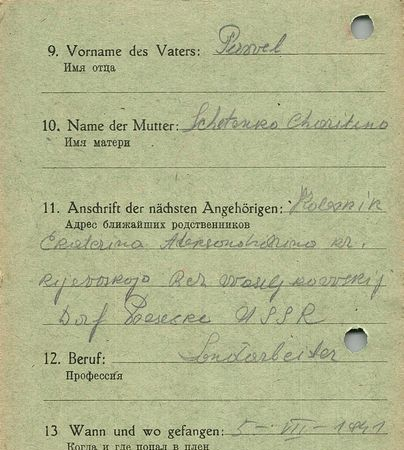 9. Vorname des Vaters: Pawel
Имя отца
10. Name der Mutter: Schetenko Charitina
Имя матери
11. Anschrift der nächsten Angehörigen:
Адрес ближайших родственников
Ekaterina
Dorf USSR
12. Beruf: Landarbeiter
Профессия
13 Wann und wo gefangen: 5-VIII-1941
Когда и где попал в плен